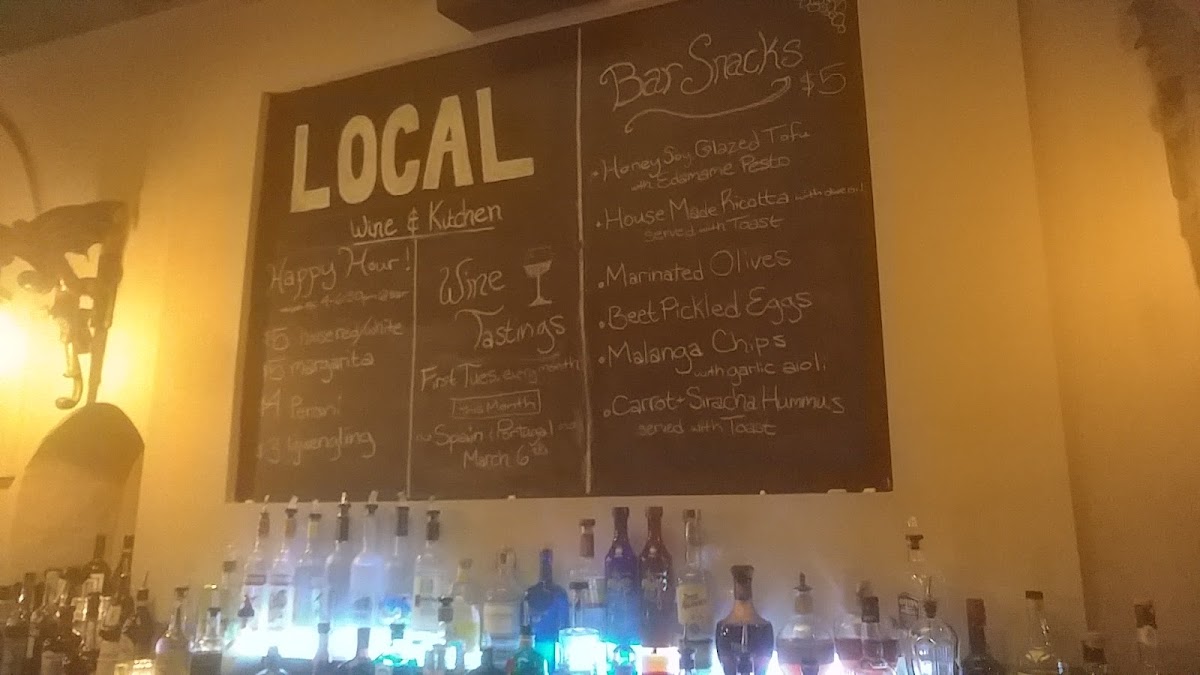 LOCAL
Wine & Kitchen
Happy Hour!
$5 house red/white
$5 margarita
4 Peroni
$3 Yuengling
Wine
Tastings
First Tues. every month
this Month
Spain & Portugal
March 6th
Bar Snacks
$5
• Honey Soy Glazed Tofu
with Edamame Pesto
• House Made Ricotta with olive oil
served with Toast
• Marinated Olives
• Beet Pickled Eggs
• Malanga Chips
with garlic aioli
• Carrot + Siracha Hummus
served with Toast